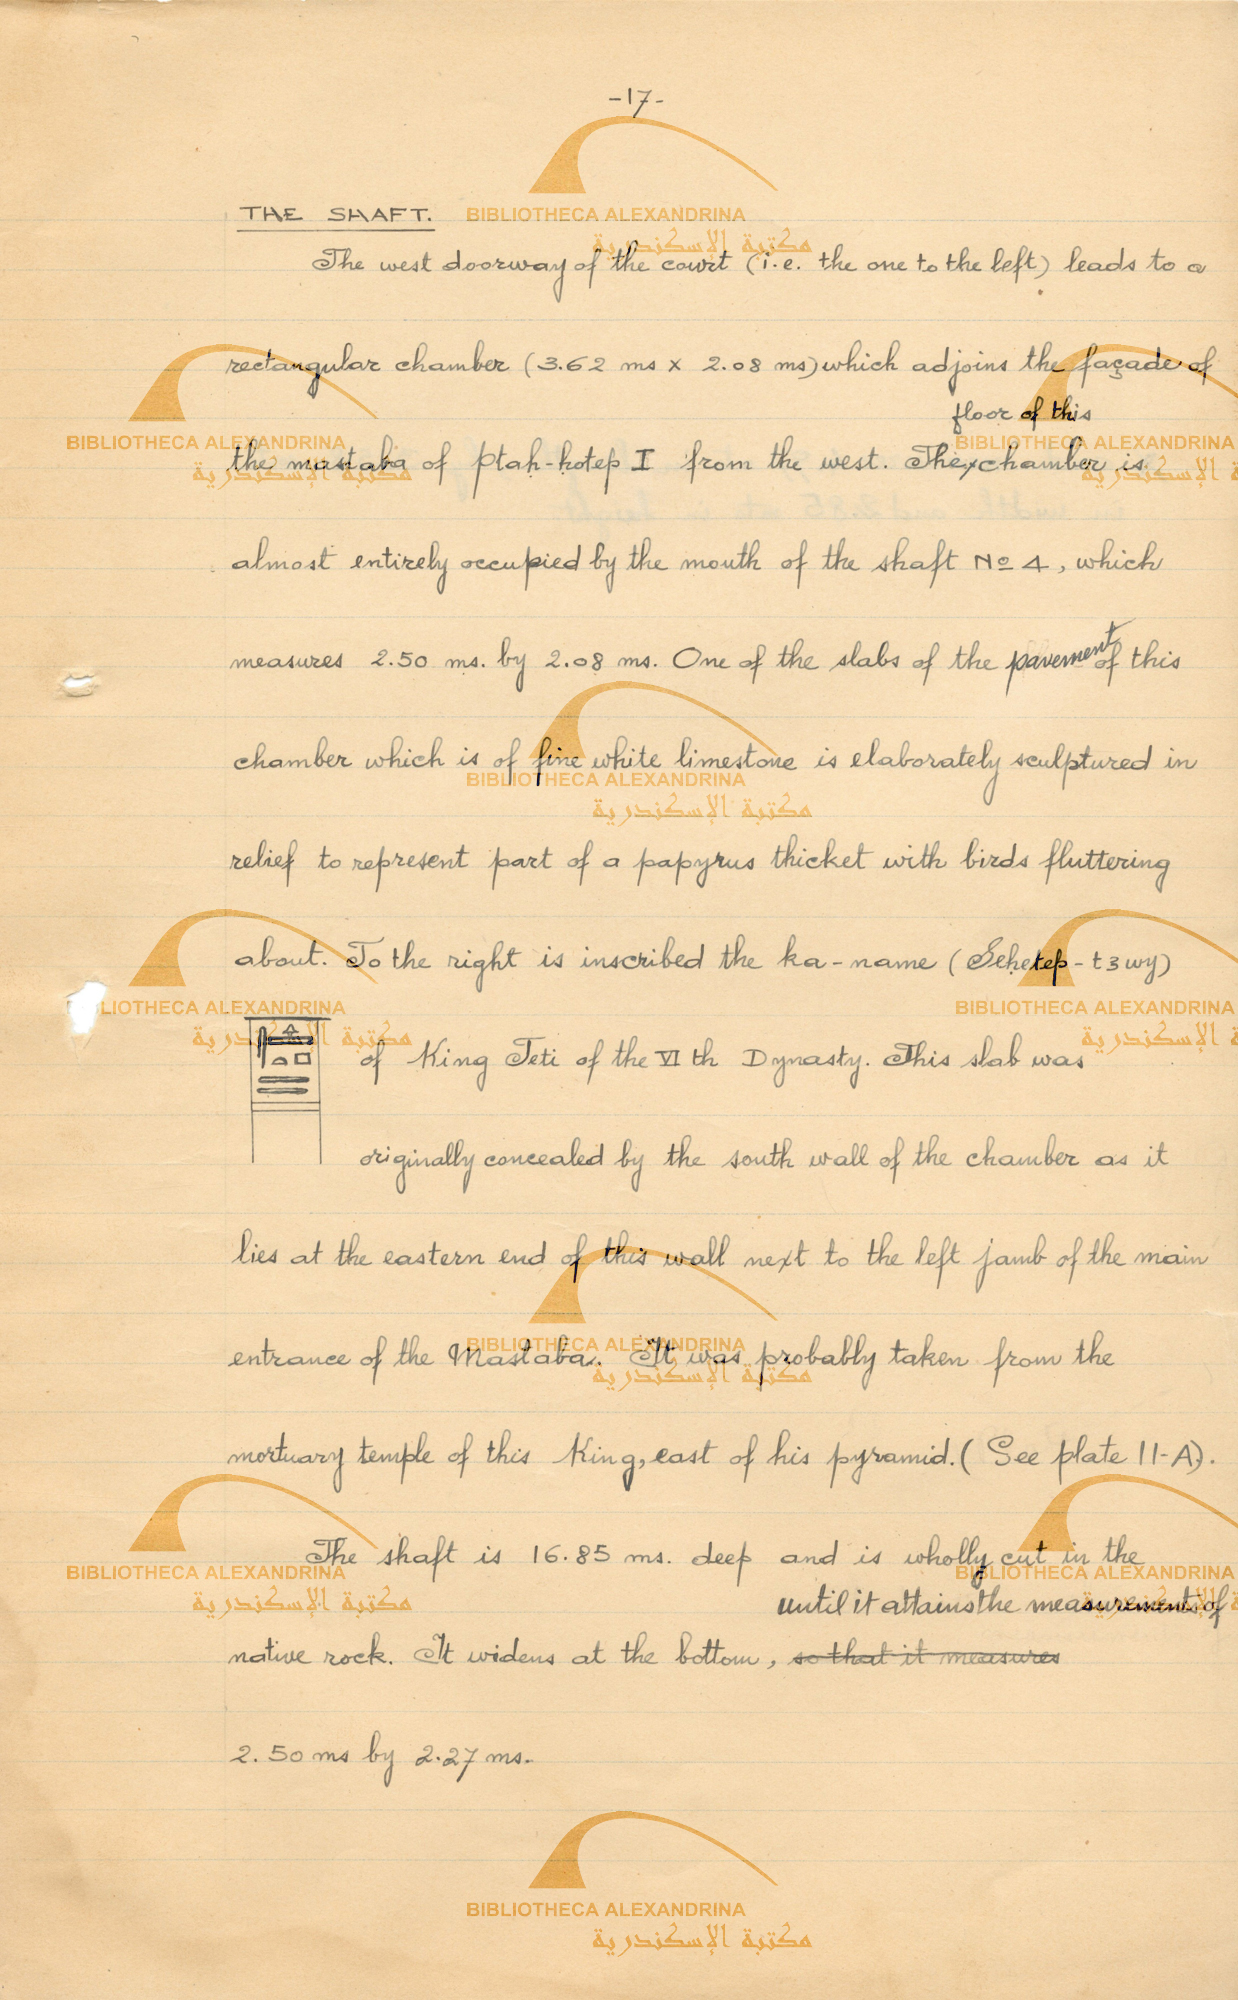 -17-
THE SHAFT.
The west doorway of the court (i.e. the one to the left) leads to a
rectangular chamber (3.62 ms x 2.08 ms) which adjoins the façade of
floor of this
the mastaba of Ptaḥ-ḥotep I from the west. The x chamber is
almost entirely occupied by the mouth of the shaft No 4, which
measures 2.50 ms. by 2.08 ms. One of the slabs of the pavement of this
chamber which is of fine white limestone is elaborately sculptured in
relief to represent part of a papyrus thicket with birds fluttering
about. To the right is inscribed the ka-name (Seḥetep-t3wy)
of King Teti of the VI th Dynasty. This slab was
originally concealed by the south wall of the chamber as it
lies at the eastern end of this wall next to the left jamb of the main
entrance of the Mastaba. It was probably taken from the
mortuary temple of this King, east of his pyramid. (See plate II-A).
The shaft is 16.85 ms. deep and is wholly cut in the
until it attains the measurements of
native rock. It widens at the bottom, so that it measures
2.50 ms by 2.27 ms.
BIBLIOTHECA ALEXANDRINA
مكتبة الإسكندرية